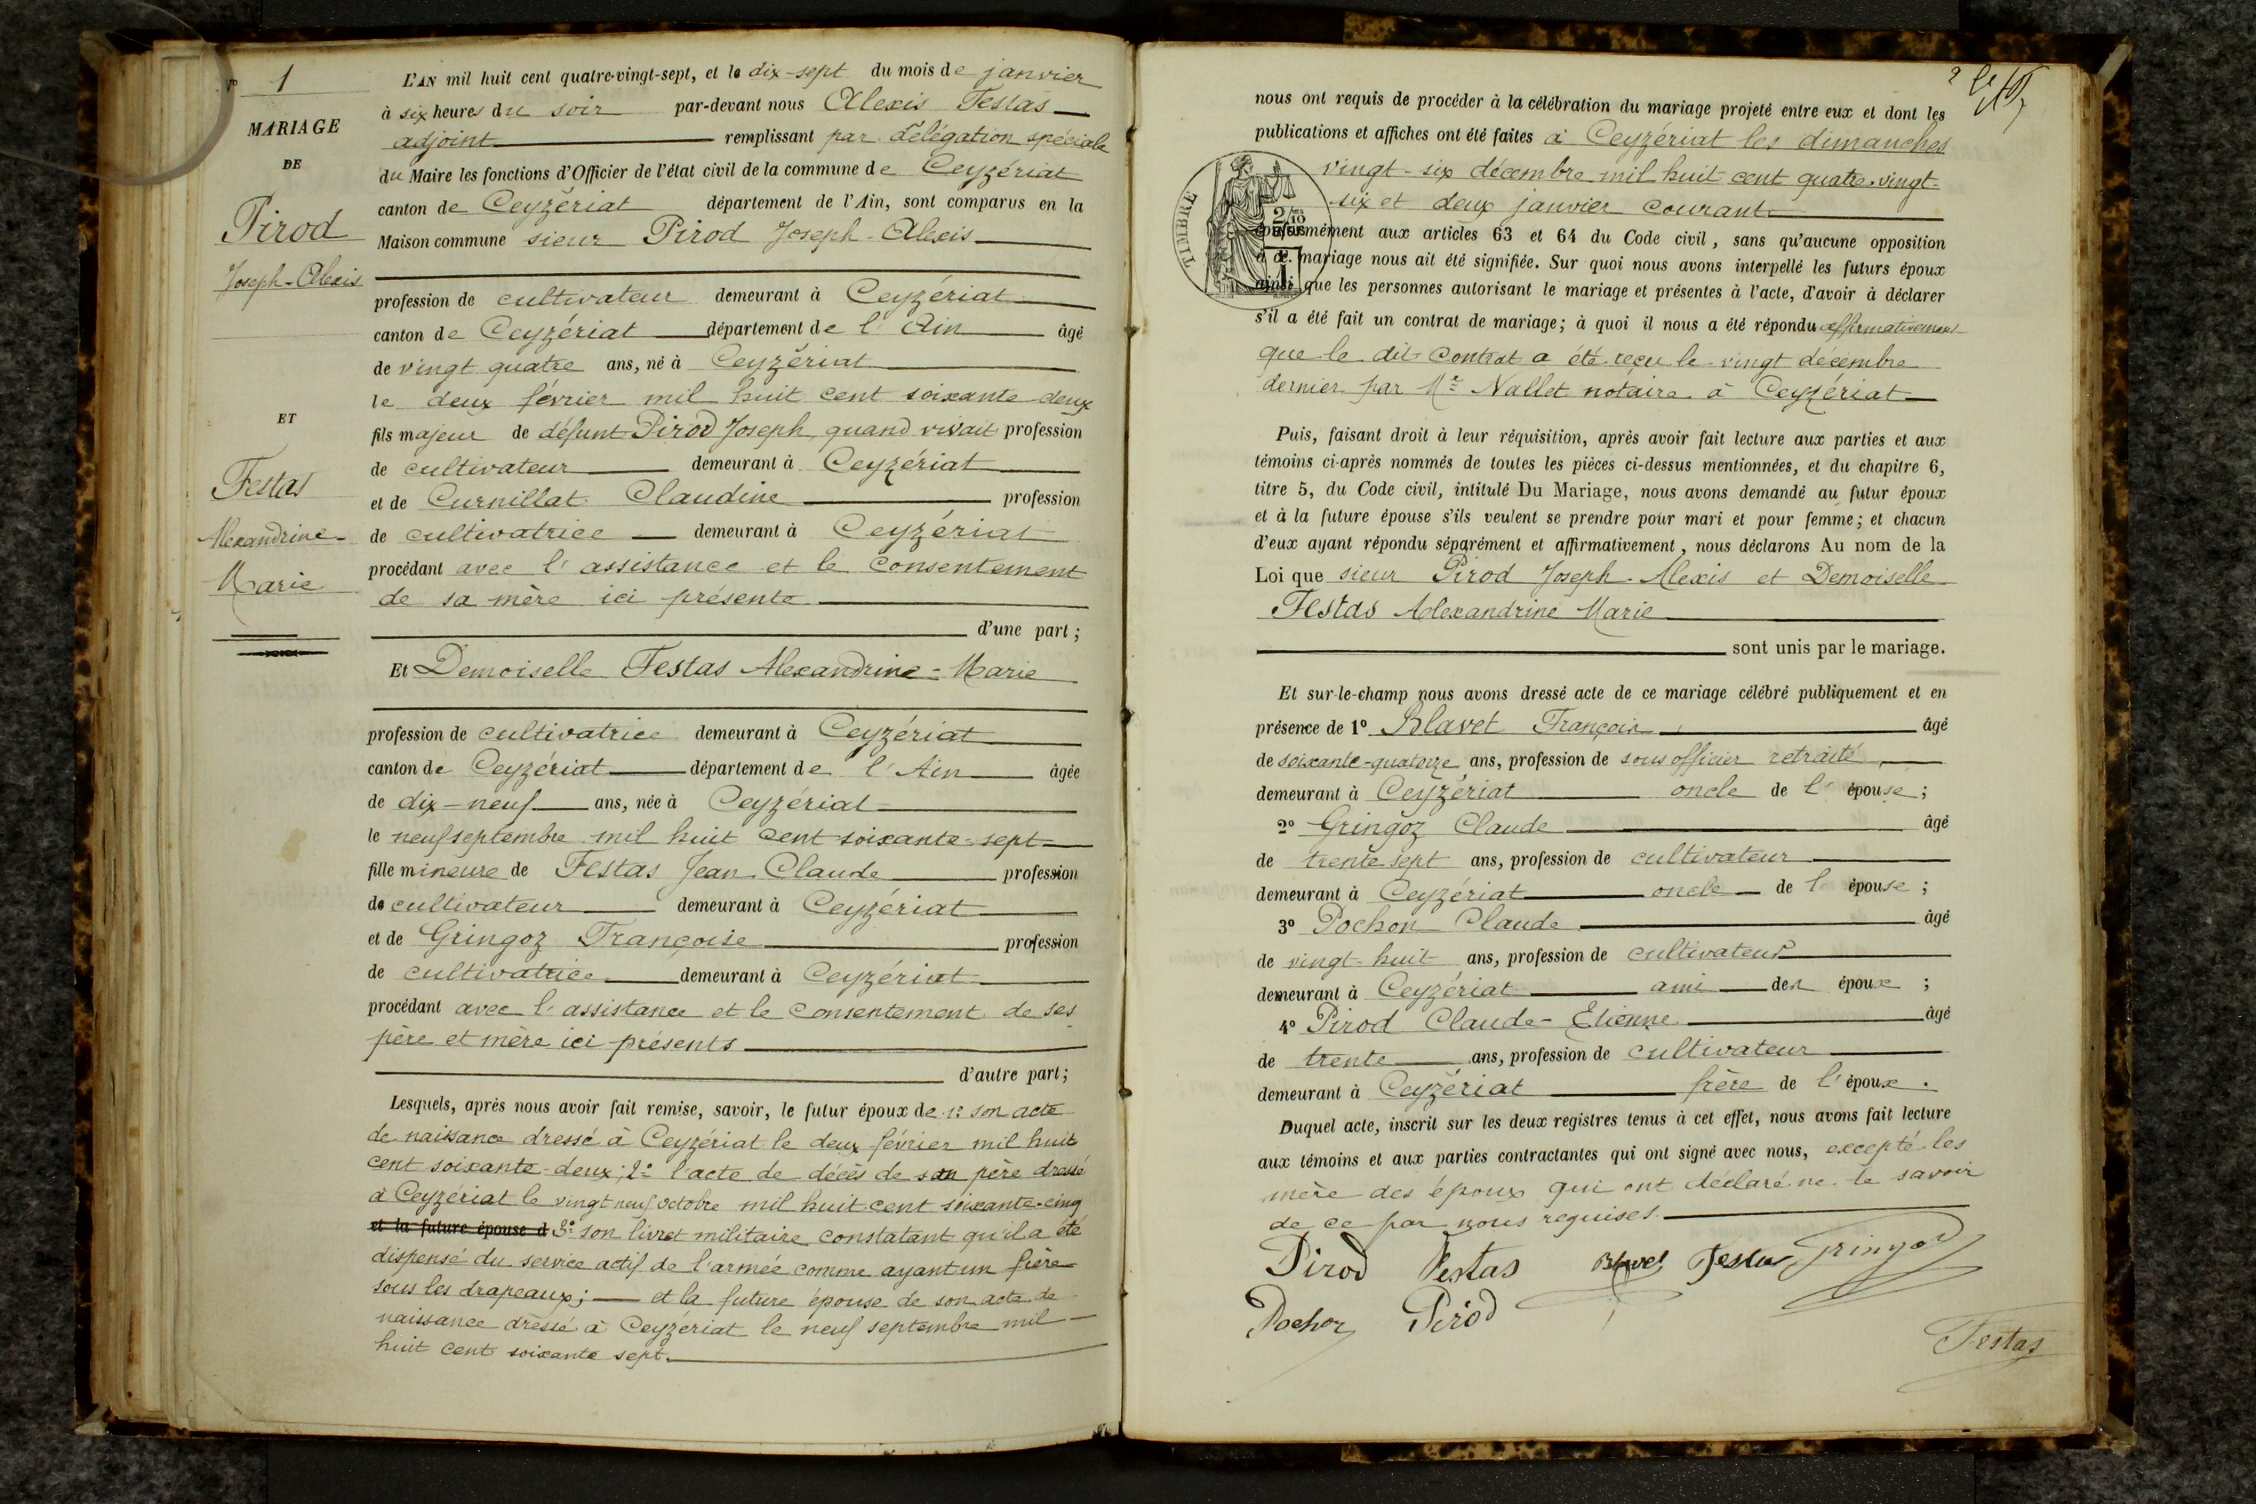 N° 1
MARIAGE
DE
Pirod
Joseph-Alexis
ET
Festas
Alexandrine-
Marie
L'AN mil huit cent quatre-vingt-sept, et le dix-sept du mois de janvier
à six heures du soir par-devant nous Alexis Festas
adjoint remplissant par délégation spéciale
du Maire les fonctions d'Officier de l'état civil de la commune de Ceyzériat
canton de Ceyzériat département de l'Ain, sont comparus en la
Maison commune sieur Pirod Joseph-Alexis
profession de cultivateur demeurant à Ceyzériat
canton de Ceyzériat département de l'Ain âgé
de vingt quatre ans, né à Ceyzériat
le deux février mil huit cent soixante-deux
fils majeur de défunt Pirod Joseph, quand vivait profession
de cultivateur demeurant à Ceyzériat
et de Curnillat Claudine profession
de cultivatrice demeurant à Ceyzériat
procédant avec l'assistance et le consentement
de sa mère ici présente
d'une part ;
Et Demoiselle Festas Alexandrine-Marie
profession de cultivatrice demeurant à Ceyzériat
canton de Ceyzériat département de l'Ain âgée
de dix-neuf ans, née à Ceyzériat
le neuf septembre mil huit cent soixante-sept
fille mineure de Festas Jean-Claude profession
de cultivateur demeurant à Ceyzériat
et de Gringoz Françoise profession
de cultivatrice demeurant à Ceyzériat
procédant avec l'assistance et le consentement de ses
père et mère ici présents
d'autre part ;
Lesquels, après nous avoir fait remise, savoir, le futur époux de 1° son acte
de naissance dressé à Ceyzériat le deux février mil huit
cent soixante-deux ; 2° l'acte de décès de son père dressé
à Ceyzériat le vingt neuf octobre mil huit cent soixante-cinq
et la future épouse d 3° son livret militaire constatant qu'il a été
dispensé du service actif de l'armée comme ayant un frère
sous les drapeaux ; et la future épouse de son acte de
naissance dressé à Ceyzériat le neuf septembre mil
huit cent soixante sept.
2
nous ont requis de procéder à la célébration du mariage projeté entre eux et dont les
publications et affiches ont été faites à Ceyzériat les dimanches
vingt-six décembre mil huit cent quatre-vingt-
six et deux janvier courant
TIMBRE
2/10
conformément aux articles 63 et 64 du Code civil, sans qu'aucune opposition
à ce mariage nous ait été signifiée. Sur quoi nous avons interpellé les futurs époux
ainsi que les personnes autorisant le mariage et présentes à l'acte, d'avoir à déclarer
s'il a été fait un contrat de mariage ; à quoi il nous a été répondu affirmativement
que le dit contrat a été reçu le vingt décembre
dernier par Me Nallet notaire à Ceyzériat
Puis, faisant droit à leur réquisition, après avoir fait lecture aux parties et aux
témoins ci-après nommés de toutes les pièces ci-dessus mentionnées, et du chapitre 6,
titre 5, du Code civil, intitulé Du Mariage, nous avons demandé au futur époux
et à la future épouse s'ils veulent se prendre pour mari et pour femme ; et chacun
d'eux ayant répondu séparément et affirmativement, nous déclarons Au nom de la
Loi que sieur Pirod Joseph-Alexis et Demoiselle
Festas Alexandrine Marie
sont unis par le mariage.
Et sur-le-champ nous avons dressé acte de ce mariage célébré publiquement et en
présence de 1° Blavet François âgé
de soixante-quatorze ans, profession de sous officier retraité
demeurant à Ceyzériat oncle de l'épouse ;
2° Gringoz Claude âgé
de trente sept ans, profession de cultivateur
demeurant à Ceyzériat oncle de l'épouse ;
3° Pochon Claude âgé
de vingt-huit ans, profession de cultivateur
demeurant à Ceyzériat ami des époux ;
4° Pirod Claude-Etienne âgé
de trente ans, profession de cultivateur
demeurant à Ceyzériat frère de l'époux.
Duquel acte, inscrit sur les deux registres tenus à cet effet, nous avons fait lecture
aux témoins et aux parties contractantes qui ont signé avec nous, excepté les
mère des époux qui ont déclaré ne le savoir
de ce par nous requises.
Pirod Festas Blavet Festas Gringoz
Pochon Pirod
Festas